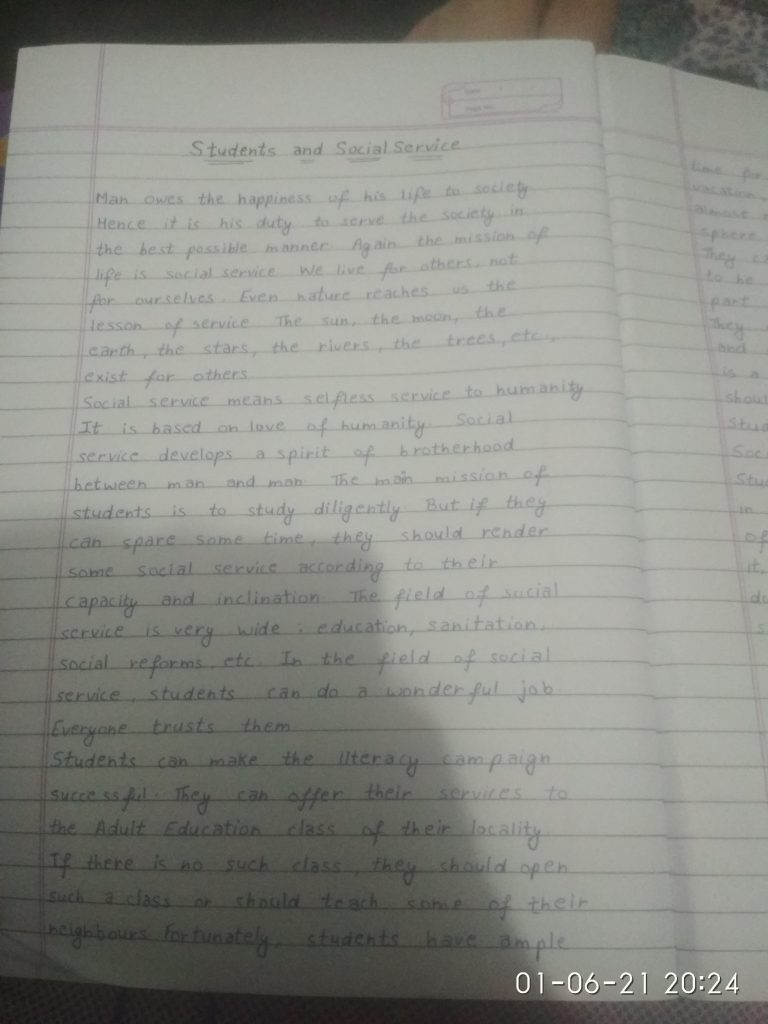 Students and Social Service
Man owes the happiness of his life to society
Hence it is his duty to serve the society in
the best possible manner. Again the mission of
life is social service. We live for others, not
for ourselves. Even nature reaches us the
lesson of service. The sun, the moon, the
earth, the stars, the rivers, the trees, etc.,
exist for others
Social service means selfless service to humanity
It is based on love of humanity. Social
service develops a spirit of brotherhood
between man and man. The main mission of
students is to study diligently. But if they
can spare some time, they should render
some social service according to their
capacity and inclination. The field of social
service is very wide : education, sanitation,
social reforms, etc. In the field of social
service, students can do a wonderful job
Everyone trusts them
Students can make the literacy campaign
successful. They can offer their services to
the Adult Education class of their locality.
If there is no such class, they should open
such a class or should teach some of their
neighbours fortunately, students have ample
time for
vacation,
almost
sphere
They
to be
part
They
and
is a
in
of
it,
01-06-21 20:24